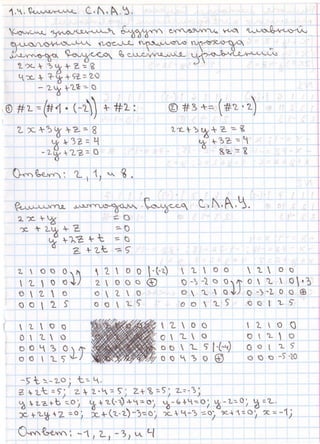 1.4. Решение С.Л.А.У.
Какие значения будут стоять на главной
диагонали после прямого прохода
метода Гаусса в системе уравнений
2x + 3y + z = 8
4x + 7y + 5z = 20
-2y + 2z = 0
① #2 = (#1 · (-2)) + #2:
② #3 += (#2 · 2)
2x + 3y + z = 8
y + 3z = 4
-2y + 2z = 0
2x + 3y + z = 8
y + 3z = 4
8z = 8
Ответ: 2, 1, и 8.
Решите методом Гаусса С.Л.А.У.
2x + y = 0
x + 2y + z = 0
y + 2z + t = 0
z + 2t = 5
2 1 0 0 0
1 2 1 0 0
0 1 2 1 0
0 0 1 2 5
1 2 1 0 0 |·(-2)
2 1 0 0 0 ⊕
0 1 2 1 0
0 0 1 2 5
1 2 1 0 0
0 -3 -2 0 0
0 1 2 1 0
0 0 1 2 5
1 2 1 0 0
0 1 2 1 0 |·3
0 -3 -2 0 0 ⊕
0 0 1 2 5
1 2 1 0 0
0 1 2 1 0
0 0 4 3 0
0 0 1 2 5
1 2 1 0 0
0 1 2 1 0
0 0 1 2 5 |·(-4)
0 0 4 3 0 ⊕
1 2 1 0 0
0 1 2 1 0
0 0 1 2 5
0 0 0 -5 -20
-5t = -20; t = 4.
z + 2t = 5; z + 2·4 = 5; z + 8 = 5; z = -3;
y + 2z + t = 0; y + 2(-3) + 4 = 0; y - 6 + 4 = 0; y - 2 = 0; y = 2.
x + 2y + z = 0; x + (2·2) - 3 = 0; x + 4 - 3 = 0; x + 1 = 0; x = -1;
Ответ: -1, 2, -3, и 4